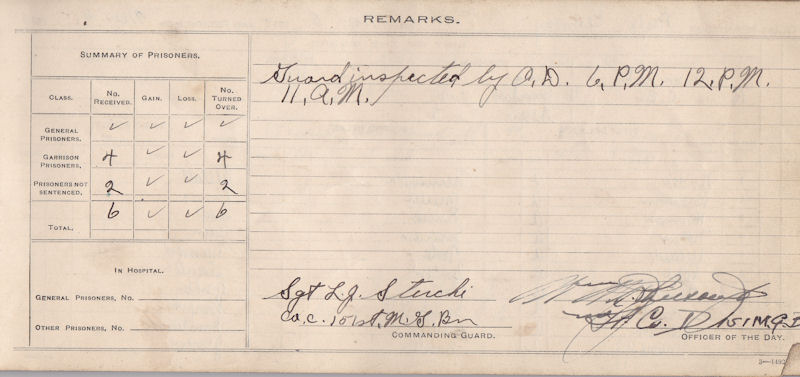 REMARKS.
SUMMARY OF PRISONERS.
CLASS. NO. RECEIVED. GAIN. LOSS. NO. TURNED OVER.
GENERAL PRISONERS. ✓ ✓ ✓ ✓
GARRISON PRISONERS. 4 ✓ ✓ 4
PRISONERS NOT SENTENCED. 2 ✓ ✓ 2
TOTAL. 6 ✓ ✓ 6
IN HOSPITAL.
GENERAL PRISONERS, NO.
OTHER PRISONERS, NO.
Guard inspected by O.D. 6, P.M. 12, P.M.
11, A.M.
Sgt L.J. Sterchi
Co. C. 151st, M.G. Bn
COMMANDING GUARD.
Wm
Co. D 151 M.G.B
OFFICER OF THE DAY.